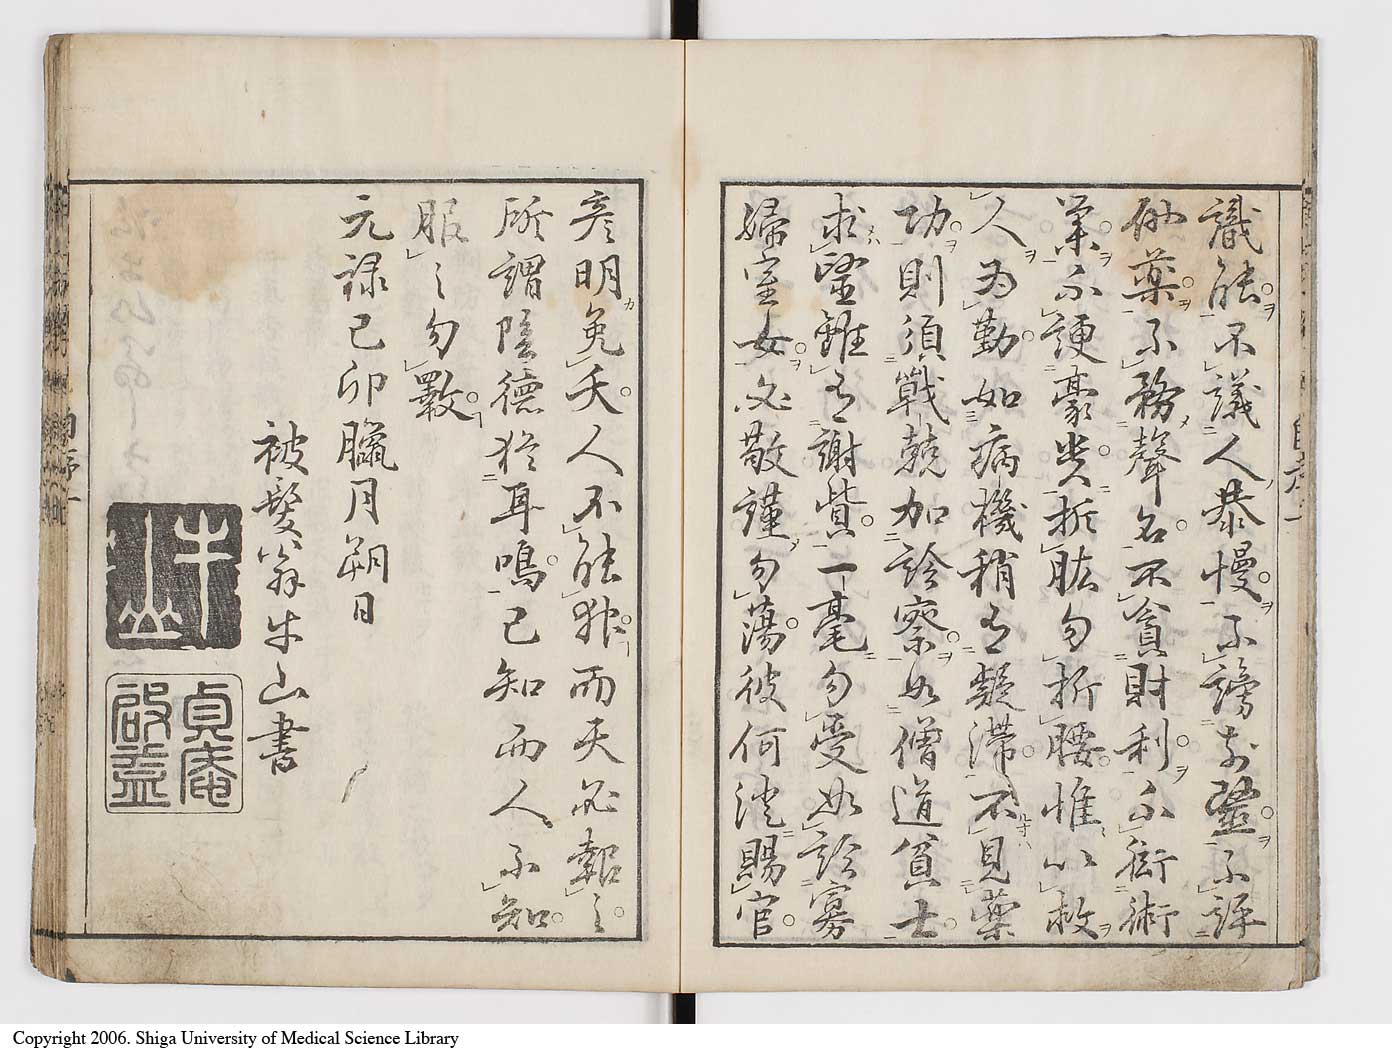 識能不議人恭慢不謗前醫不評
他藥不務聲名不貪財利不衒術
業不諛豪貴折肱勿折腰惟以救
人為勤如病機稍有凝滯不見藥
功則須戰兢加診察如僧道貧士
求醫雖有謝貲一毫勿受如診寡
婦室女必敬謹勿蕩彼何澄賜官
彥明免夭人不能而天必報之
所謂陰德猶耳鳴已知而人不知
服之勿斁
元祿己卯臘月朔日
被髮翁牛山書
牛山
貞庵啟益
Copyright 2006. Shiga University of Medical Science Library